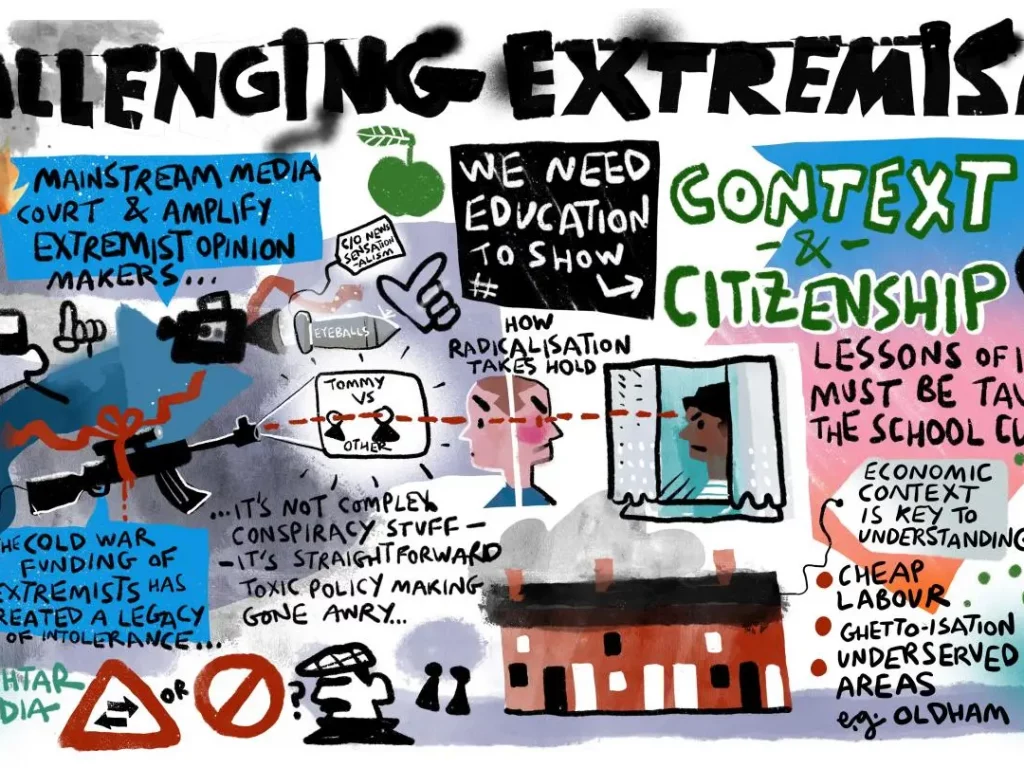 ALLENGING EXTREMIS
MAINSTREAM MEDIA
COURT & AMPLIFY
EXTREMIST OPINION
MAKERS...
C/O NEWS
SENSATION
-ALISM
EYEBALLS
WE NEED
EDUCATION
TO SHOW
#
HOW
RADICALISATION
TAKES HOLD
TOMMY
VS
OTHER
CONTEXT
- & -
CITIZENSHIP
LESSONS OF
MUST BE TAU
THE SCHOOL CU
ECONOMIC
CONTEXT
IS KEY TO
UNDERSTANDING
CHEAP
LABOUR
GHETTO-ISATION
UNDERSERVED
AREAS
e.g: OLDHAM
THE COLD WAR
FUNDING OF
EXTREMISTS HAS
REATED A LEGACY
OF INTOLERANCE...
...IT'S NOT COMPLEX
CONSPIRACY STUFF -
- IT'S STRAIGHTFORWARD
TOXIC POLICY MAKING
GONE AWRY...
HTAR
DIA-
OR
?